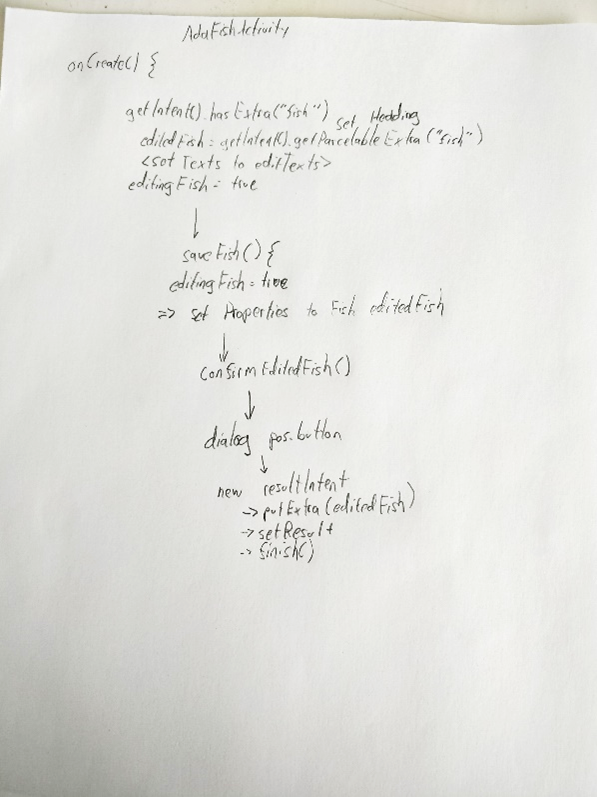 AddFishActivity
onCreate() {
getIntent().hasExtra("fish") set Hedding
editedFish = getIntent().getParcelableExtra("fish")
<set Texts to editTexts>
editingFish = true
↓
saveFish() {
editingFish = true
=> set Properties to Fish editedFish
↓
confirmEditedFish()
↓
dialog pos.button
↓
new resultIntent
-> putExtra(editedFish)
-> setResult
-> finish()